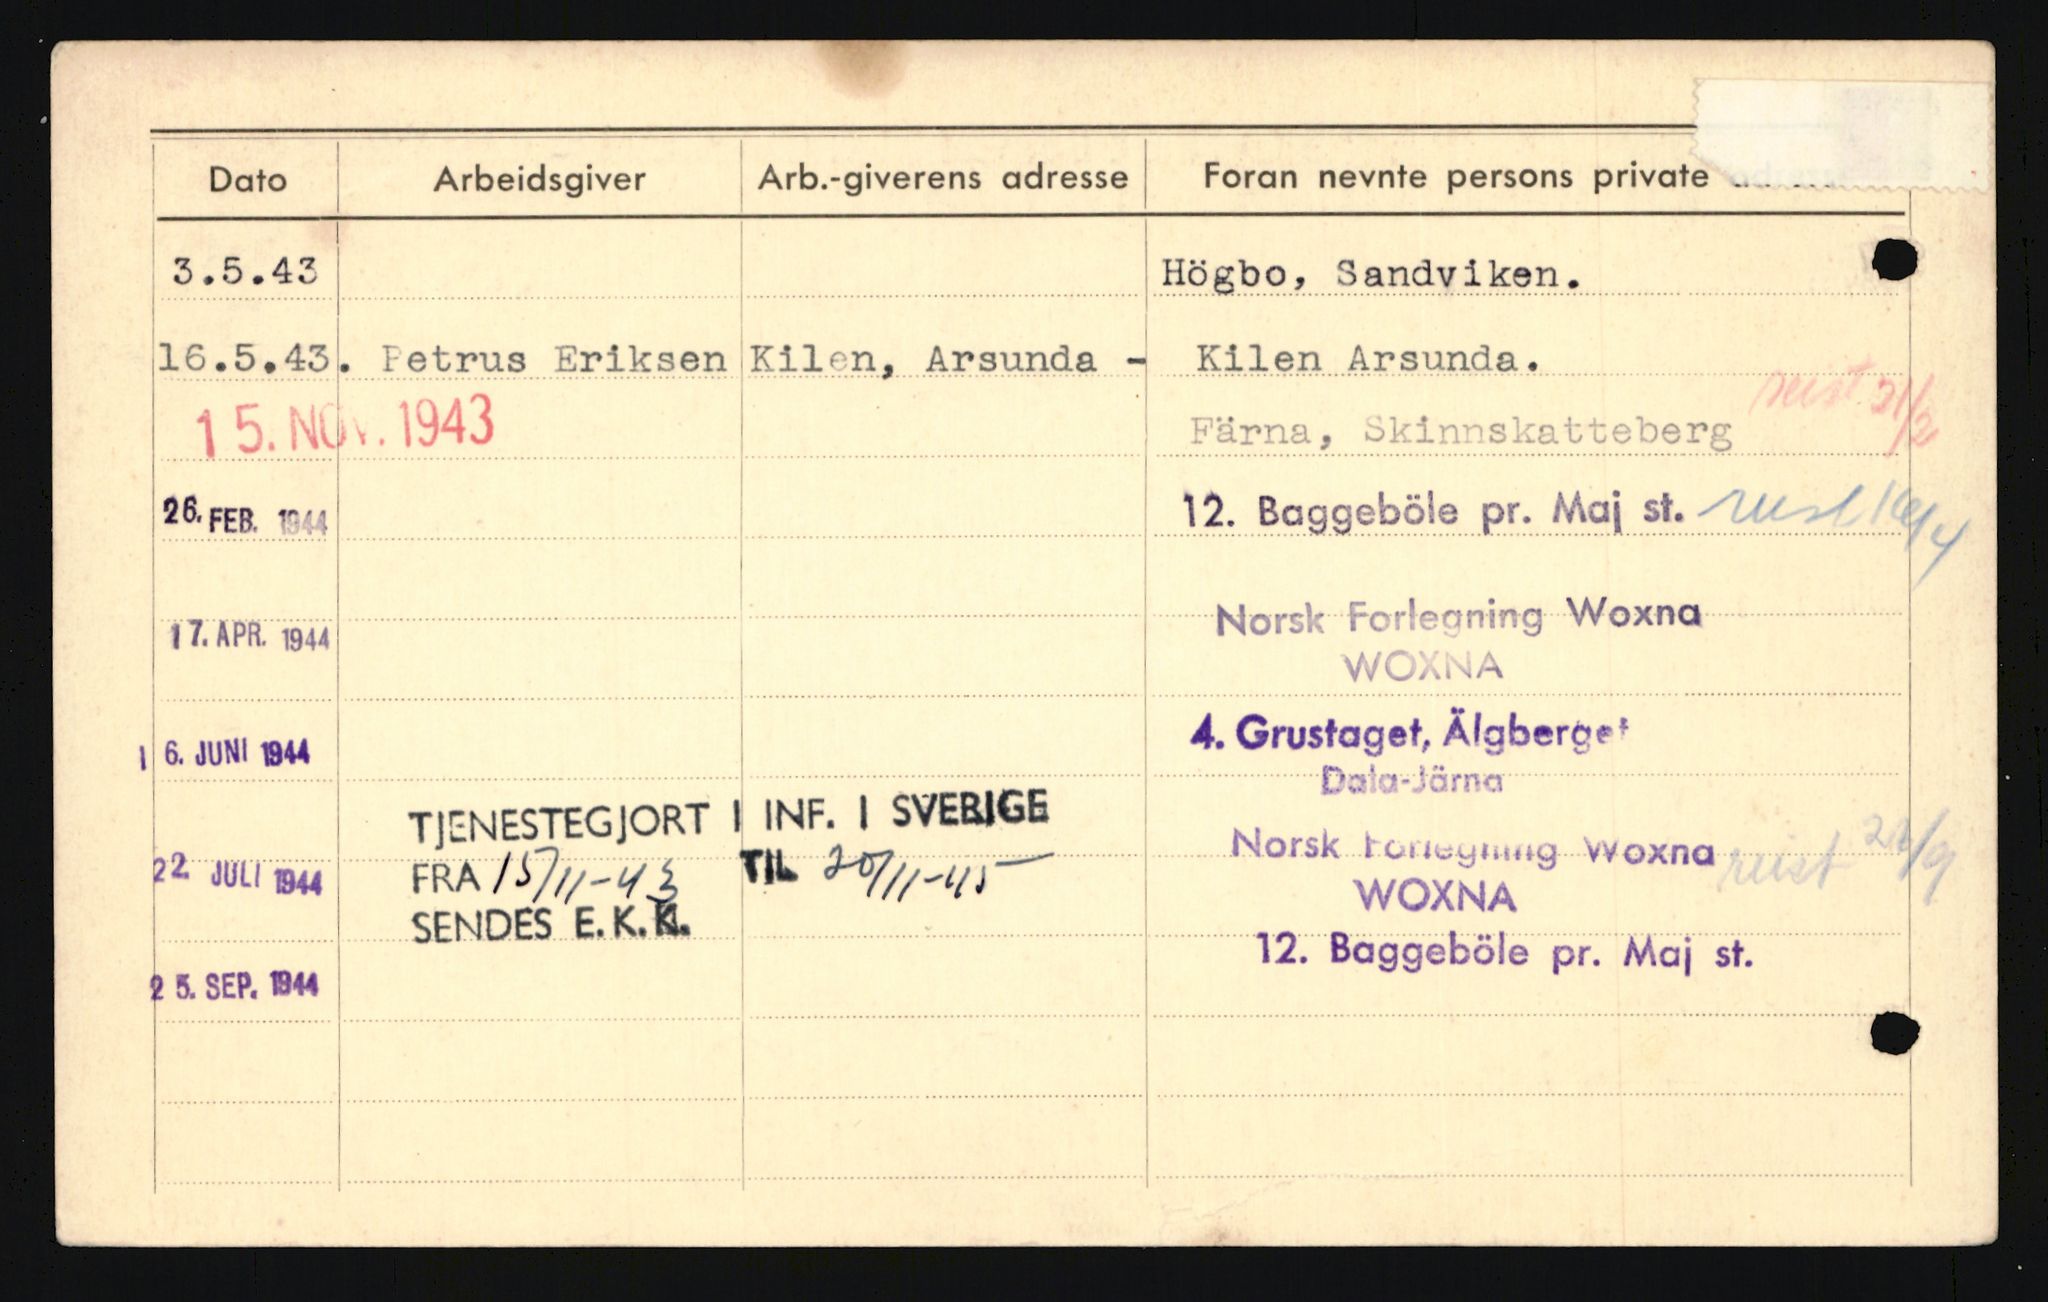 Dato Arbeidsgiver Arb.-giverens adresse Foran nevnte persons private adresse
3.5.43 Högbo, Sandviken.
16.5.43. Petrus Eriksen Kilen, Arsunda - Kilen Arsunda.
15. NOV. 1943 Färna, Skinnskatteberg reist 21/2
26. FEB. 1944 12. Baggeböle pr. Maj st. reist 16/4
17. APR. 1944 Norsk Forlegning Woxna
WOXNA
16. JUNI 1944 4. Grustaget, Älgberget
Dala-Järna
TJENESTEGJORT I INF. I SVERIGE
22. JULI 1944 FRA 15/11-43 TIL 20/11-45 Norsk Forlegning Woxna reist 22/9
WOXNA
SENDES E.K.K.
25. SEP. 1944 12. Baggeböle pr. Maj st.